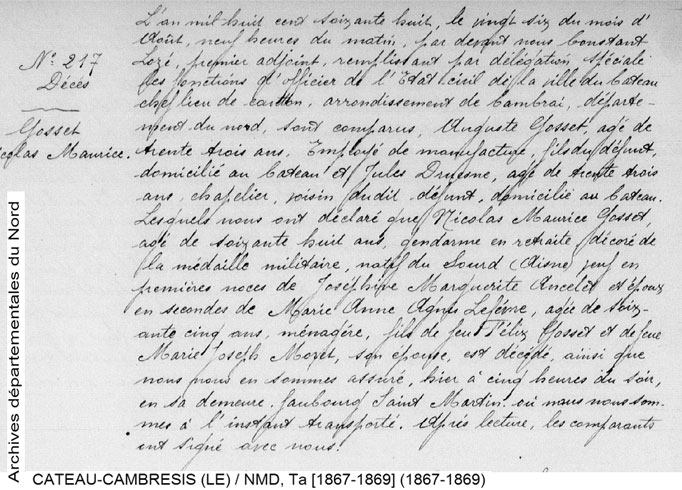 N° 217
Décès
Gosset
Nicolas Maurice.
L'an mil huit cent soixante huit, le vingt six du mois d'
Août, neuf heures du matin, par devant nous Constant
Lozé, premier adjoint, remplissant par délégation spéciale
les fonctions d'officier de l'Etat-civil de la ville du Cateau
chef lieu de canton, arrondissement de Cambrai, départe-
ment du nord, sont comparus, Auguste Gosset, agé de
trente trois ans, Employé de manufacture, fils du défunt,
domicilié au Cateau et Jules Druesne, agé de trente trois
ans, chapelier, voisin dudit défunt, domicilié au Cateau.
Lesquels nous ont déclaré que Nicolas Maurice Gosset,
agé de soixante huit ans, gendarme en retraite, décoré de
la médaille militaire, natif du Sourd (Aisne) veuf en
premières noces de Joséphine Marguerite Ancelet et époux
en secondes de Marie Anne Agnès Lefèvre, agée de soix-
ante cinq ans, ménagère, fils de feu Félix Gosset et de feue
Marie Joseph Moret, son épouse, est décédé, ainsi que
nous nous en sommes assuré, hier à cinq heures du soir,
en sa demeure, faubourg Saint Martin. où nous nous som-
mes à l'instant transporté. Après lecture, les comparants
ont signé avec nous.
Archives départementales du Nord
CATEAU-CAMBRESIS (LE) / NMD, Ta [1867-1869] (1867-1869)